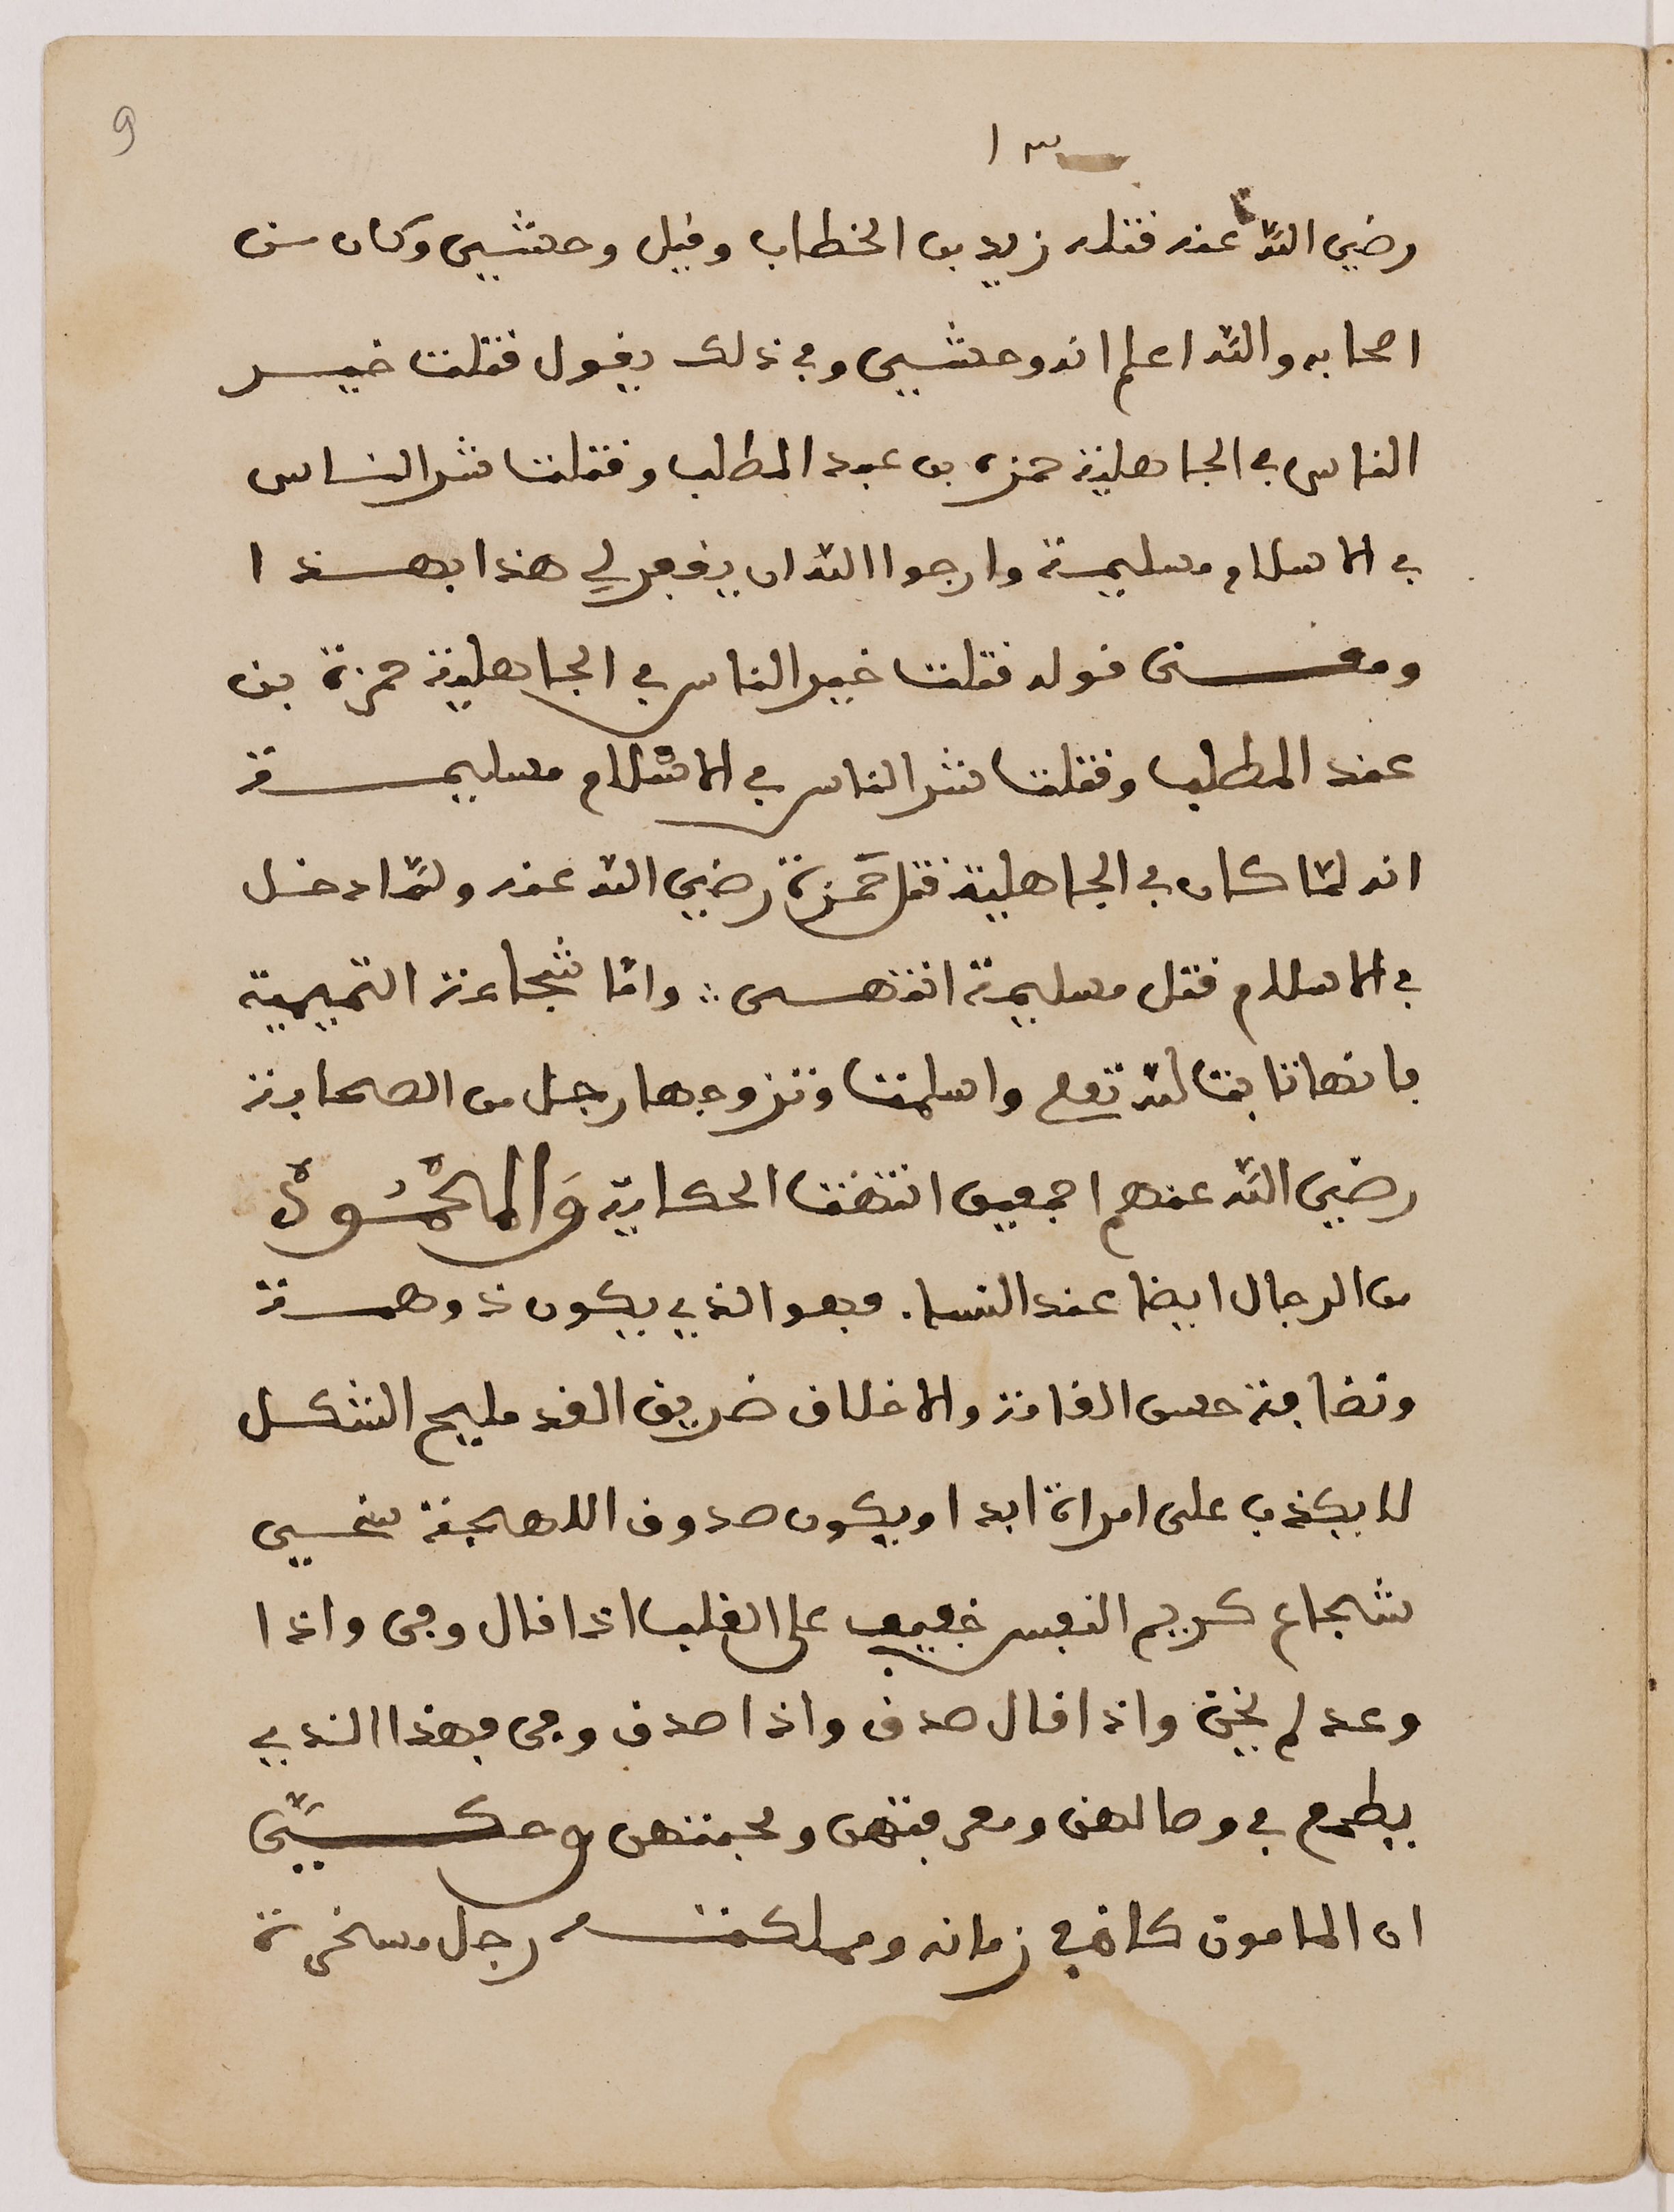 9
١٣
رضي الله عنه قتله زيد بن الخطاب وقيل وحشي وكان من
اصحابه والله اعلم انه وحشي وفي ذلك يقول قتلت خير
الناس في الجاهلية حمزه بن عبد المطلب وقتلت شر الناس
في الاسلام مسليمة وارجوا الله ان يغفر لي هذا بهذا
ومعنى قوله قتلت خير الناس في الجاهلية حمزة بن
عبد المطلب وقتلت شر الناس في الاسلام مسليمة
انه لمّا كان في الجاهلية قتل حمزة رضي الله عنه ولمّا دخل
في الاسلام قتل مسليمة انتهى ∴ وامّا شجاعة التميمية
فانها تابت لله تعلى واسلمت وتزوجها رجل من الصحابة
رضي الله عنهم اجمعين انتهت الحكاية وَالمحْمُودْ
من الرجال ايضا عند النساء فهو الذي يكون ذو همة
ونضافة حسن القامة والاخلاق ضريف القد مليح الشكل
لا يكذب على امراة ابدا ويكون صدوق اللاهجة سخي
شجاع كريم النفس خفيف على القلب اذا قال وفى واذا
وعد لم يخن واذا قال صدق واذا صدق وفى فهذا الذي
يطمع في وصالهن ومعرفتهن ومحبتهن وحكيَّ
ان المامون كان في زمانه ومملكته رجل مسخرة